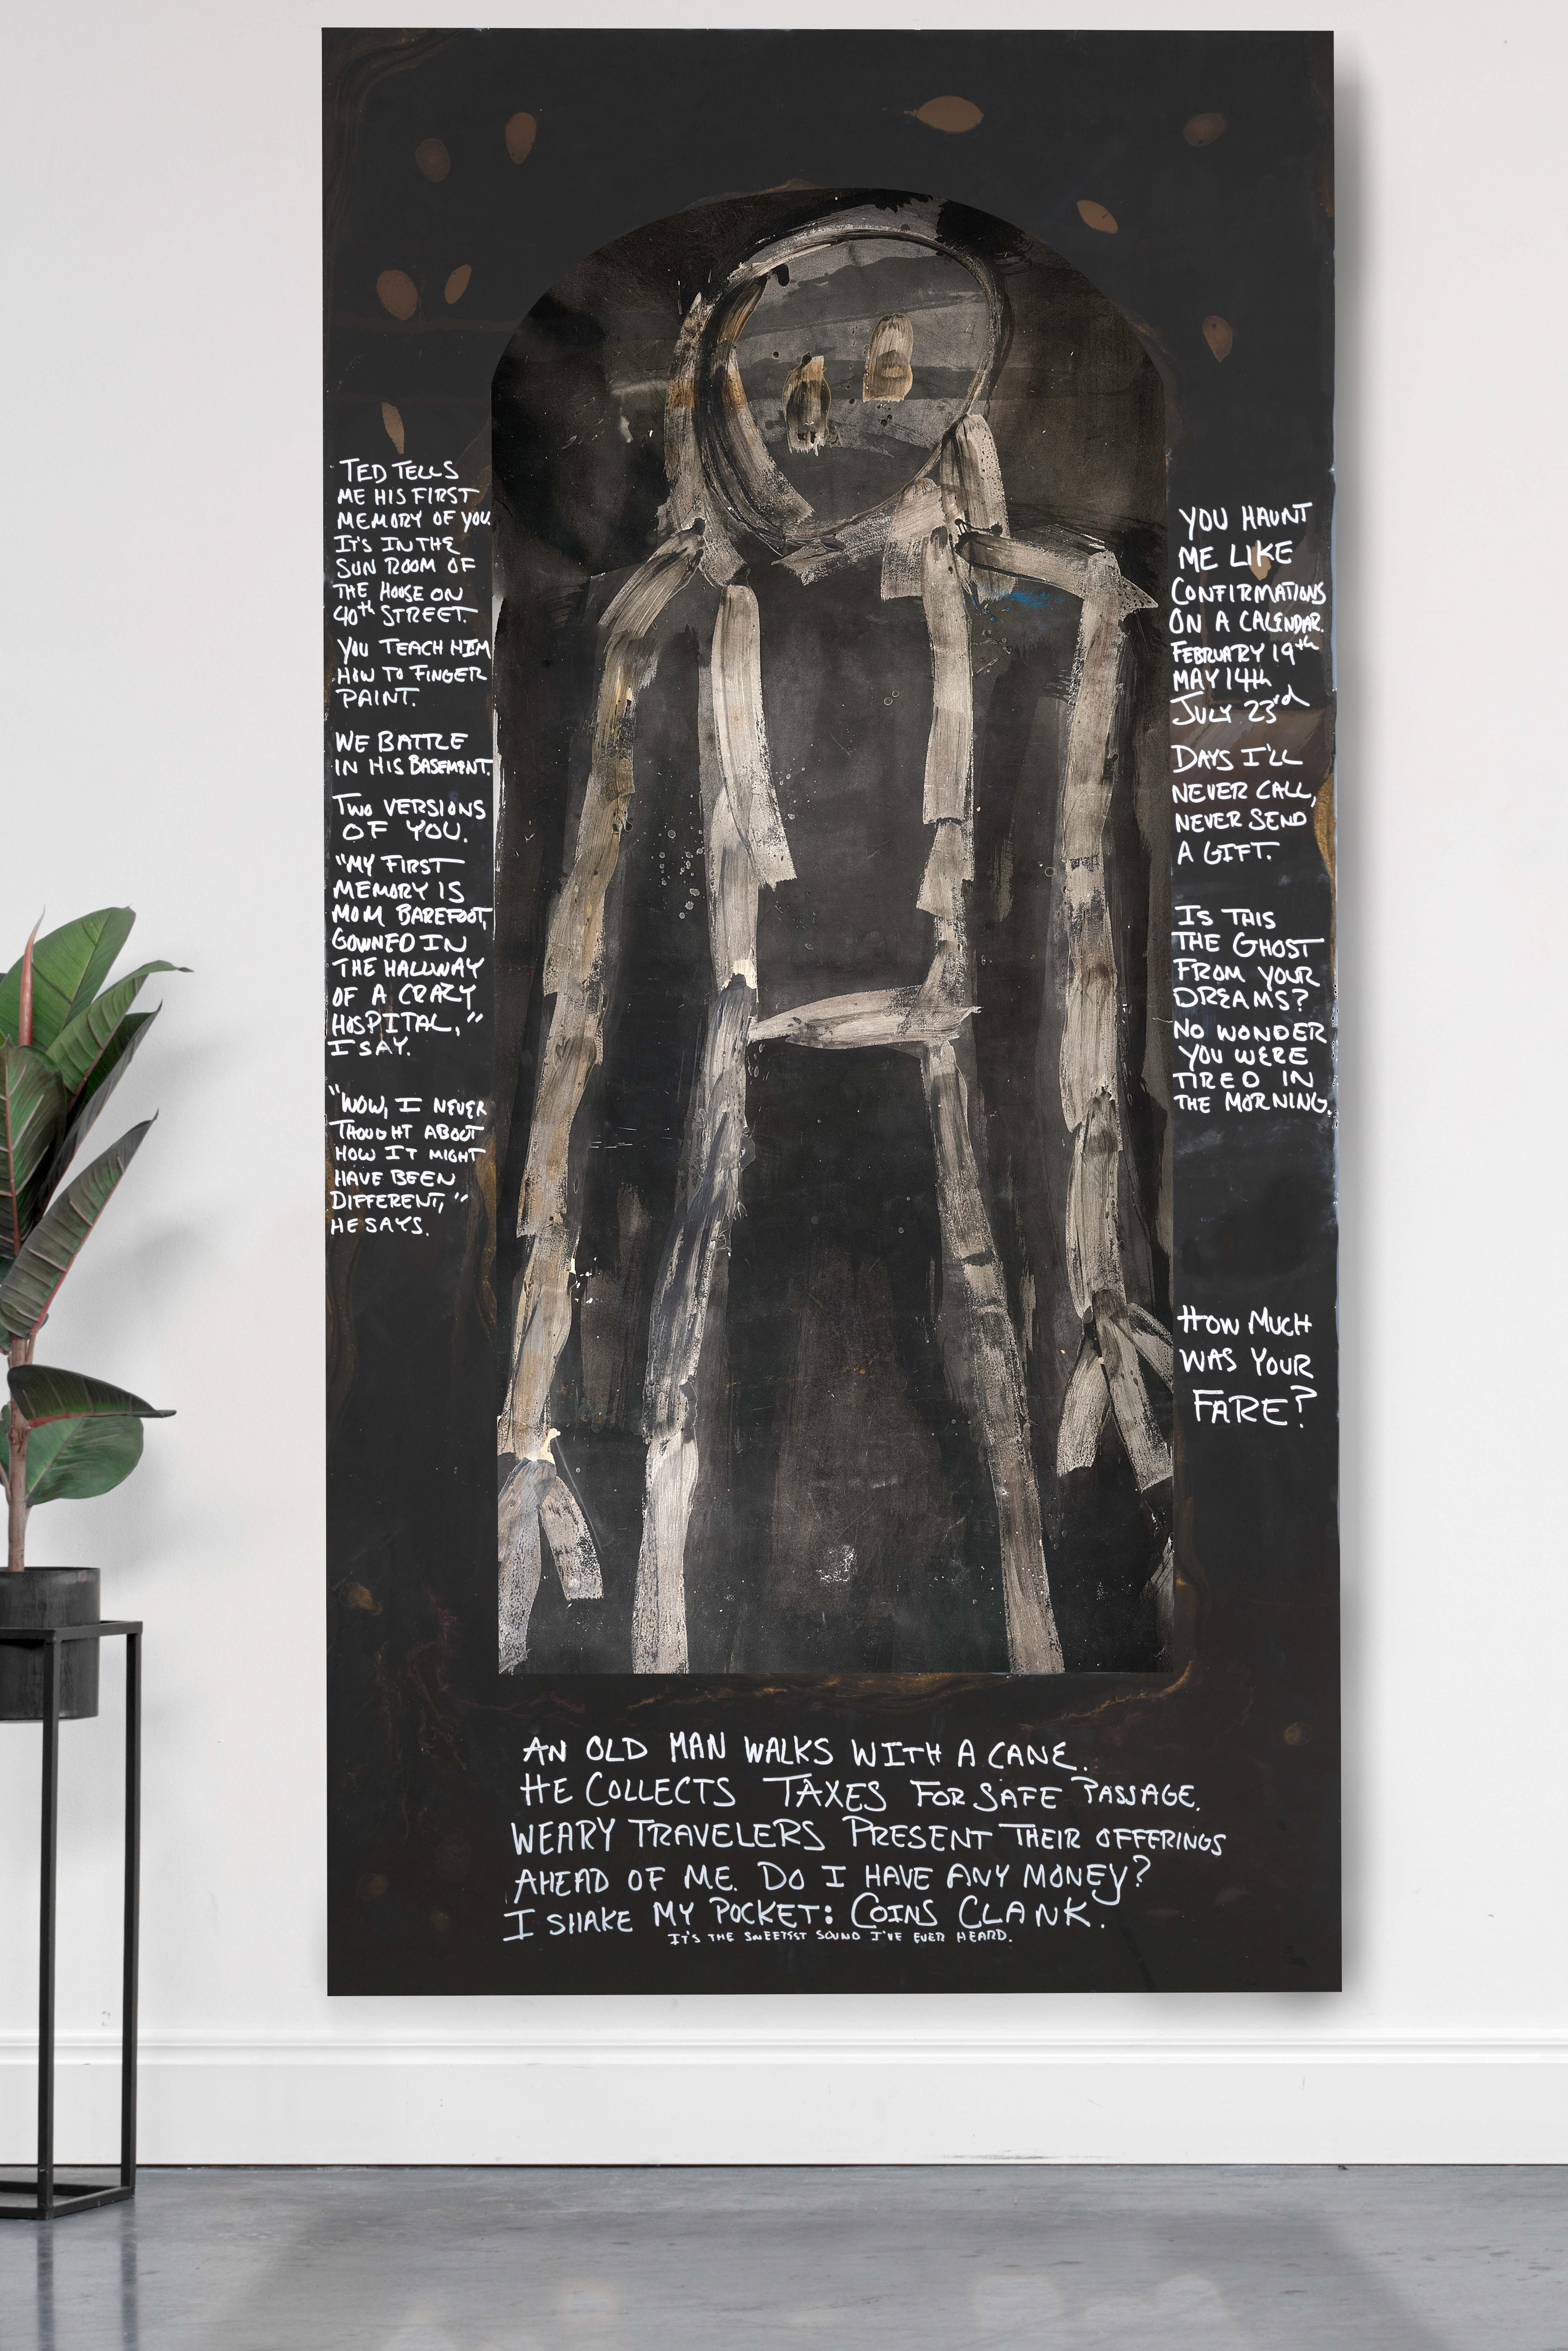 TED TELLS
ME HIS FIRST
MEMORY OF YOU.
IT'S IN THE
SUN ROOM OF
THE HOUSE ON
40th STREET.
YOU TEACH HIM
HOW TO FINGER
PAINT.
WE BATTLE
IN HIS BASEMENT.
TWO VERSIONS
OF YOU.
"MY FIRST
MEMORY IS
MOM BAREFOOT,
GOWNED IN
THE HALLWAY
OF A CRAZY
HOSPITAL,"
I SAY.
"WOW, I NEVER
THOUGHT ABOUT
HOW IT MIGHT
HAVE BEEN
DIFFERENT,"
HE SAYS.
YOU HAUNT
ME LIKE
CONFIRMATIONS
ON A CALENDAR.
FEBRUARY 19th
MAY 14th
JULY 23rd
DAYS I'LL
NEVER CALL,
NEVER SEND
A GIFT.
IS THIS
THE GHOST
FROM YOUR
DREAMS?
NO WONDER
YOU WERE
TIRED IN
THE MORNING.
HOW MUCH
WAS YOUR
FARE?
AN OLD MAN WALKS WITH A CANE.
HE COLLECTS TAXES FOR SAFE PASSAGE.
WEARY TRAVELERS PRESENT THEIR OFFERINGS
AHEAD OF ME. DO I HAVE ANY MONEY?
I SHAKE MY POCKET: COINS CLANK.
IT'S THE SWEETEST SOUND I'VE EVER HEARD.